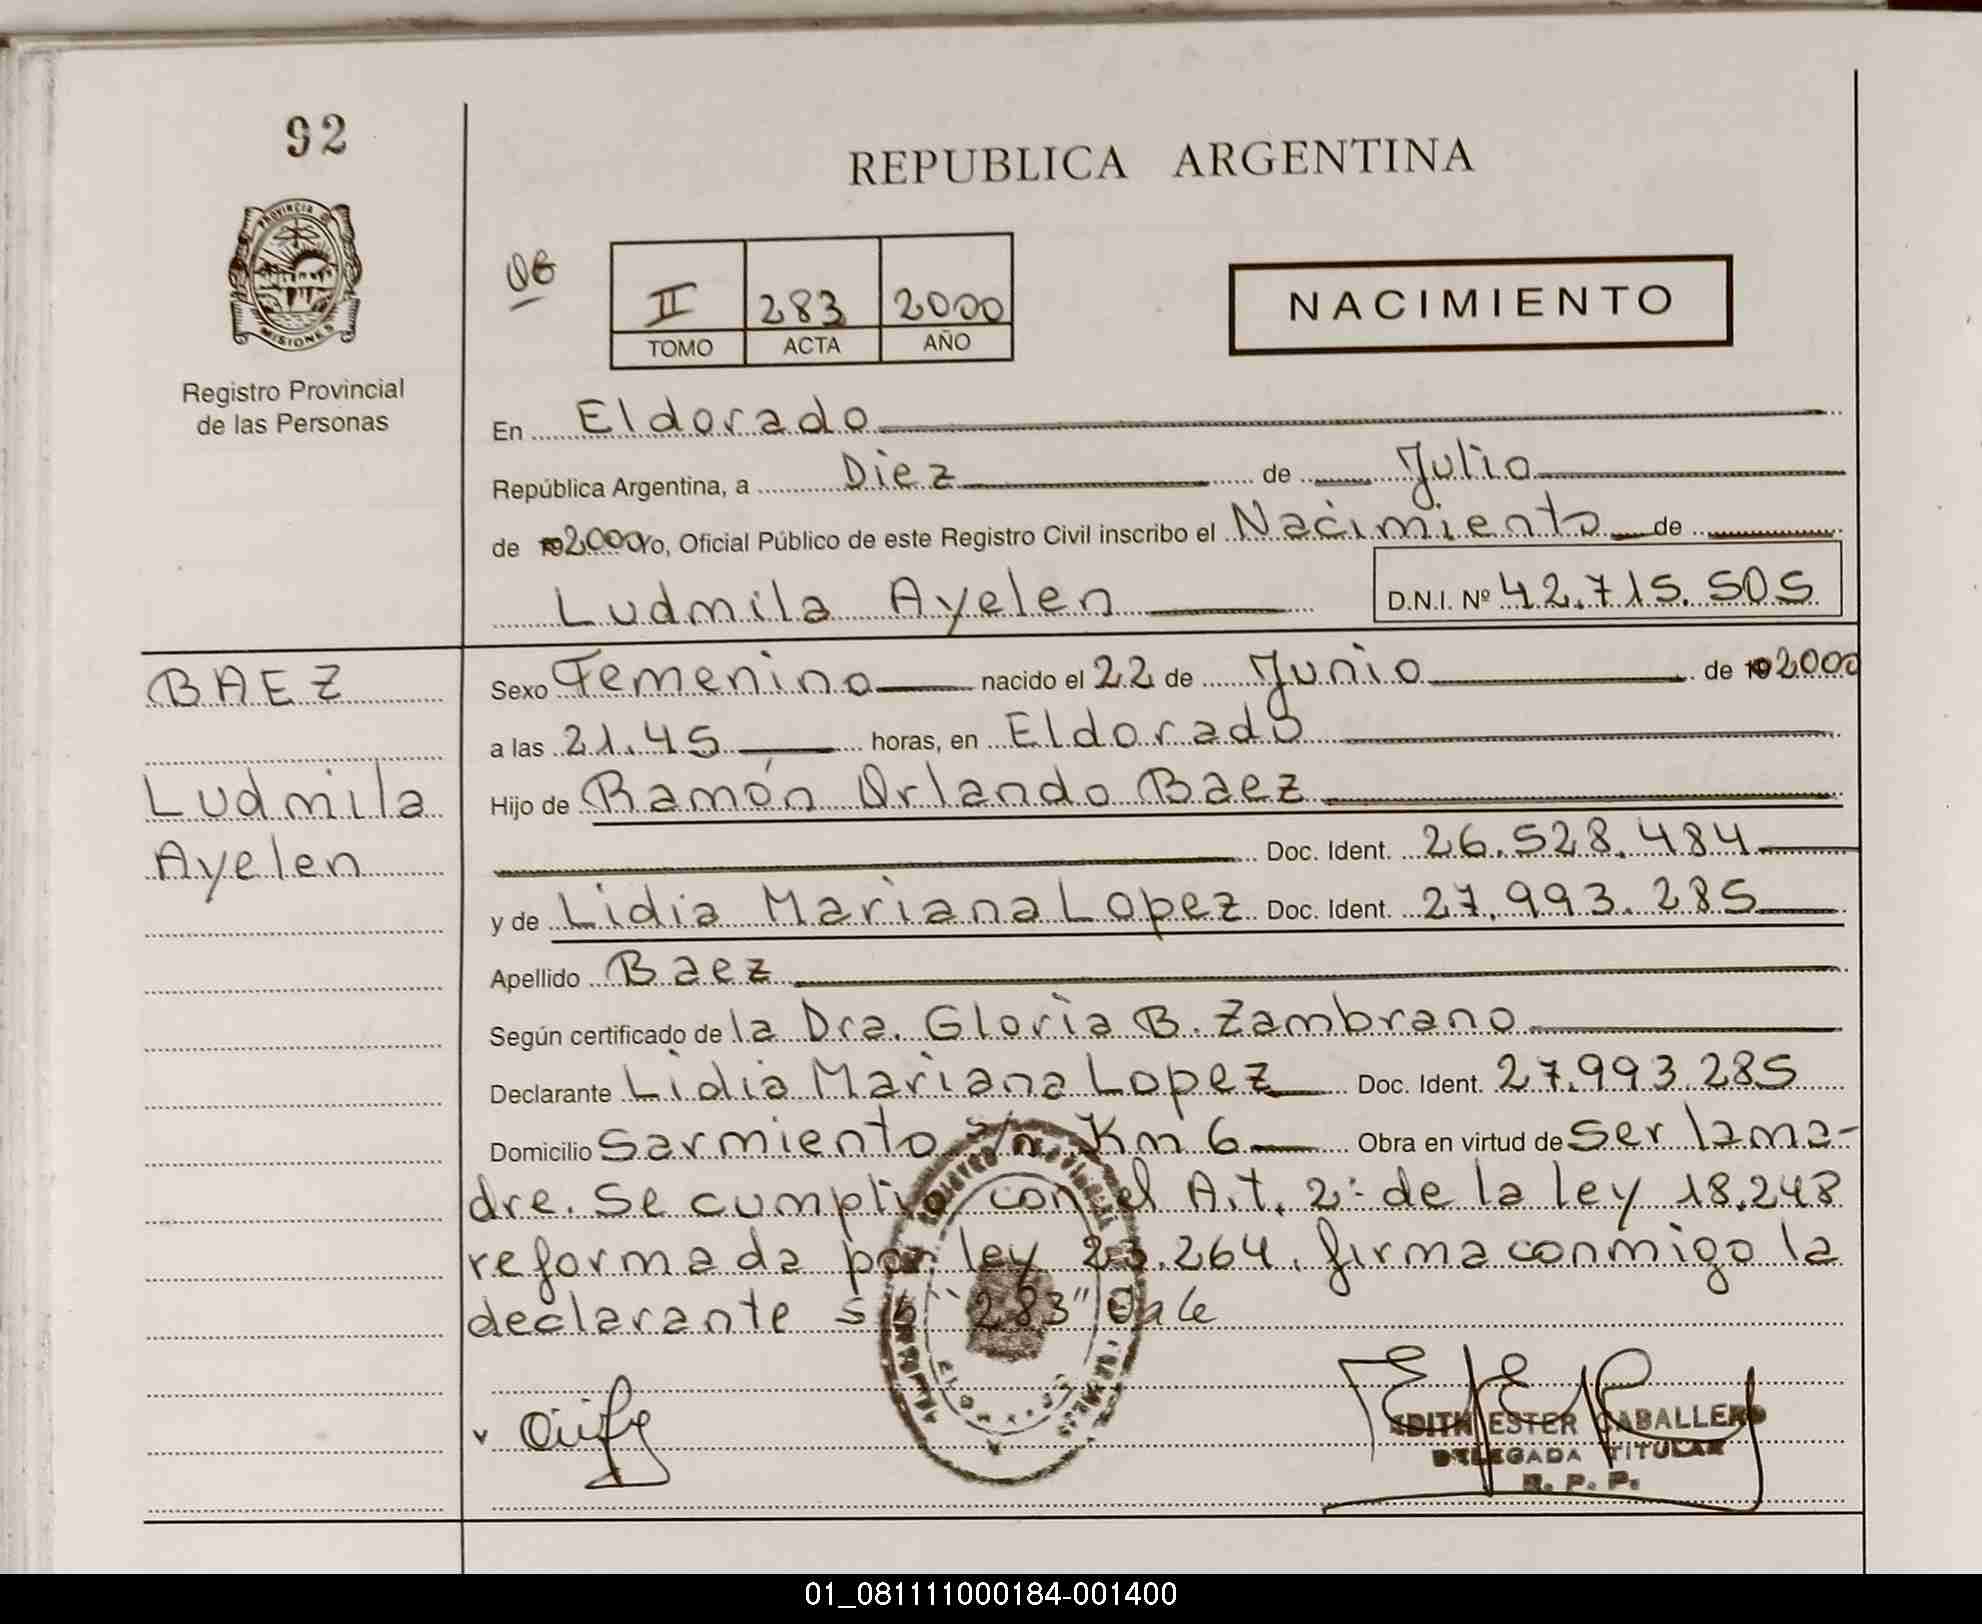 92
REPUBLICA ARGENTINA
PROVINCIA DE
MISIONES
Registro Provincial
de las Personas
II 283 2000
TOMO ACTA AÑO
NACIMIENTO
En Eldorado
República Argentina, a Diez de Julio
de 192000 Yo, Oficial Público de este Registro Civil inscribo el Nacimiento de
Ludmila Ayelen D.N.I. Nº 42.715.505
BAEZ
Ludmila
Ayelen
Sexo Femenino nacido el 22 de Junio de 192000
a las 21.45 horas, en Eldorado
Hijo de Ramón Orlando Baez
Doc. Ident. 26.528.484
y de Lidia Mariana Lopez Doc. Ident. 27.993.285
Apellido Baez
Según certificado de la Dra. Gloria B. Zambrano
Declarante Lidia Mariana Lopez Doc. Ident. 27.993.285
Domicilio Sarmiento s/n Km 6 Obra en virtud de ser la ma-
dre. Se cumplio con el Art. 2: de la ley 18.248
reformada por ley 23.264. firma conmigo la
declarante s/b "283" Vale
EDITH ESTER CABALLERO
DELEGADA TITULAR
R. P. P.
01_081111000184-001400